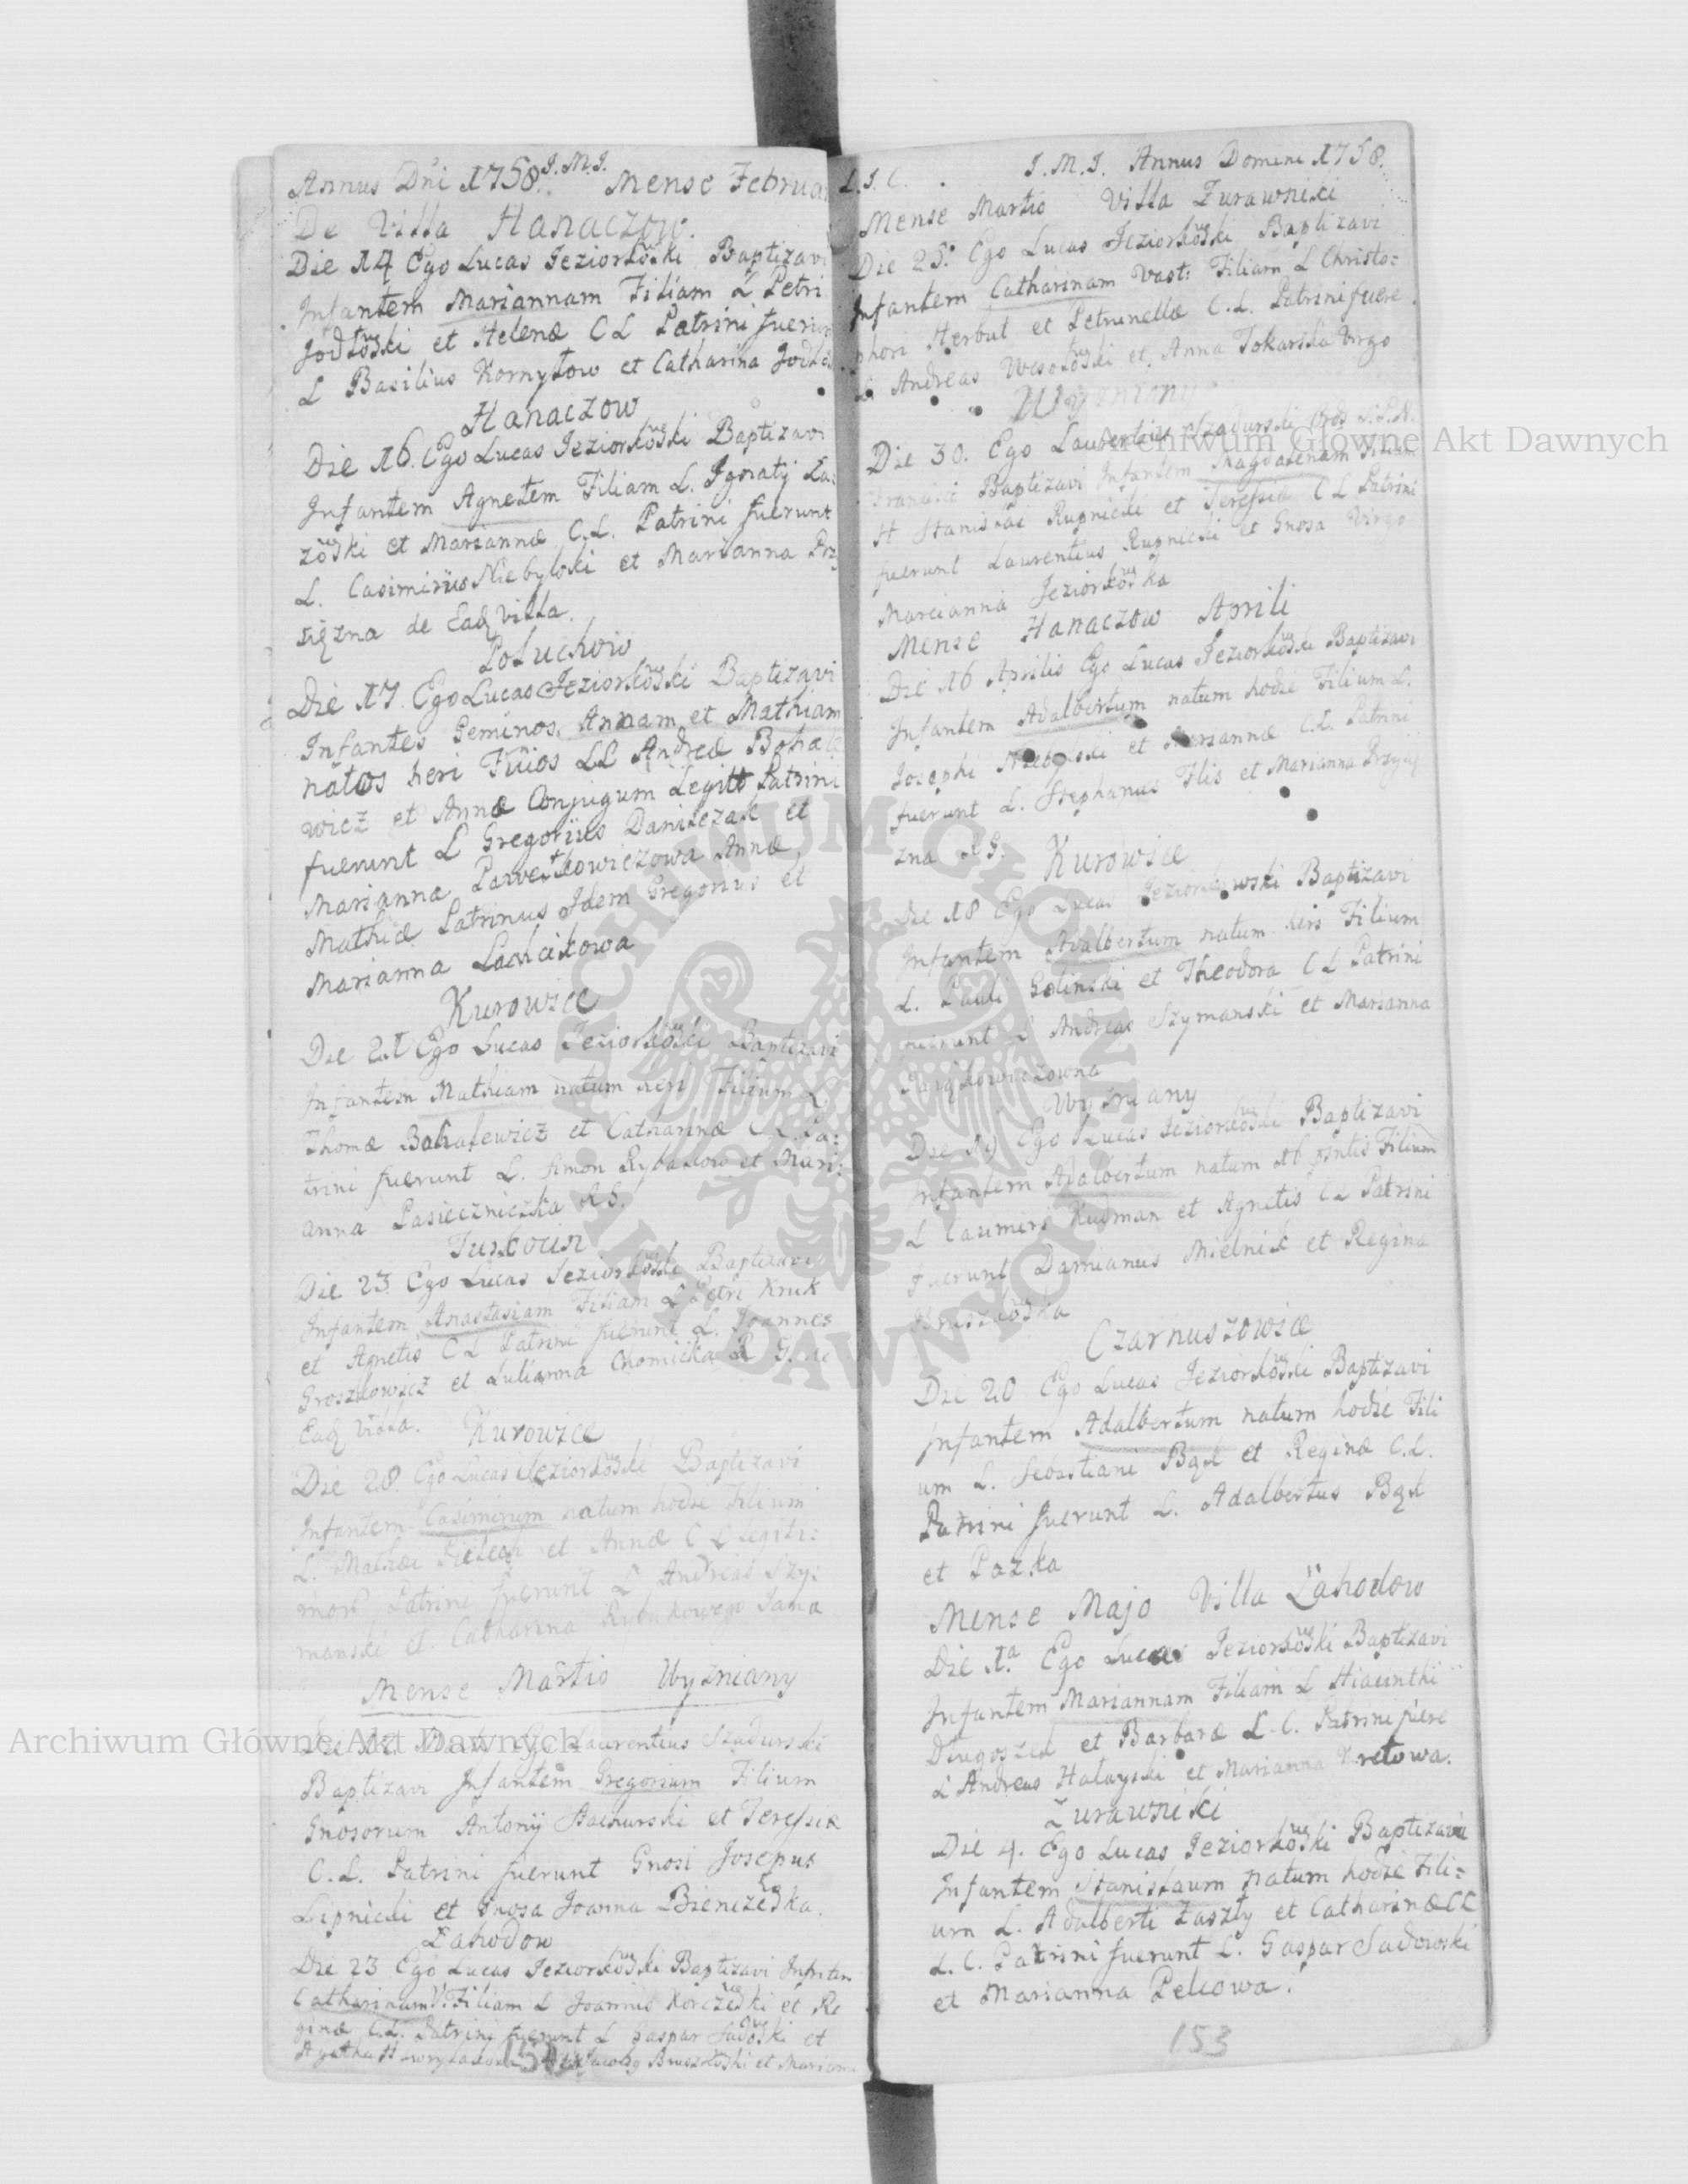 Annus Dni 1758. J.M.J. Mense Februar
De Villa Hanaczow.
Die 14 Ego Lucas Jeziorkowski Baptizavi
Infantem Mariannam Filiam L Petri
Jodłowski et Helenæ C L Patrini fuerun
L Basilius Kornyłow et Catharina Jodło
Hanaczow
Die 16. Ego Lucas Jeziorkowski Baptizavi
Infantem Agnetem Filiam L. Ignatij Ła:
zowski et Mariannæ C.L. Patrini fuerunt
L. Casimirus Niebylski et Marianna Prz
ziężna de Eadq Villa.
Połuchow
Die 17. Ego Lucas Jeziorkowski Baptizavi
Infantes Geminos, Annam et Mathiam
natos heri Filios LL Andreæ Boha
wicz et Annæ Conjugum Legitt Patrini
fuerunt L Gregorius Daniłczak et
Marianna Annæ,
Mathiæ Patrinus Idem Gregorius et
Marianna
Kurowice
Die 21 Ego Lucas Jeziorkowski Baptizavi
Infantem Mathiam natum heri Filium L
Thomæ Bohatewicz et Catharinæ C.L. Pa:
trini fuerunt L. Simon et Mari:
anna Pasieczniczka RS.
Turkocin
Die 23 Ego Lucas Jeziorkowski Baptizavi
Infantem Anastasiam Filiam L Petri Kruk
et Agnetis C L Patrini fuerunt L. Joannes
Groszkowicz et Julianna Chomicka R S. de
Eadq Villa. Kurowice
Die 28. Ego Lucas Jeziorkowski Baptizavi
Infantem Casimirum natum hodie Filium
L. Mathæi et Annæ C L Legiti:
mor Patrini fuerunt L Andreas Szy:
manski et Catharina
Mense Martio Wyzniany
Die 12 Martij Ego Laurentius Szadurski
Baptizavi Infantem Gregorium Filium
Gnosorum Antonij Stachurski et Teressiæ
C.L. Patrini fuerunt Gnosi Josepus
Lipnicki et Gnosa Joanna
Łahodow
Die 23 Ego Lucas Jeziorkowski Baptizavi Infntem
Catharinam V. Filiam L Joannis et Re
ginæ C.L. Patrini fuerunt L Gaspar Sadowski et
Agatha et Mariann
L.J.C. J.M.J. Annus Domini 1758.
Mense Martio Villa Zurawniki
Die 25. Ego Lucas Jeziorkowski Baptizavi
Infantem Catharinam Vast: Filiam L Christo:
phori Herbut et Petrunellæ C.L. Patrini fuere
L Andreas Wesołowski et Anna Tokarska Virgo
Wyzniany
Die 30. Ego Laurentius Szadurski Ords S.P.N.
Francisci Baptizavi Infantem Magdalenam Filiam
H Stanislai Rupnicki et Teressiæ C L Patrini
fuerunt Laurentius Rupnicki et Gnosa Virgo
Marcianna Jeziorkowska
Mense Hanaczow Aprili
Die 16 Aprilis Ego Lucas Jeziorkowski Baptizavi
Infantem Adalbertum natum hodie Filium L.
Josephi et Mariannæ C.L. Patrini
fuerunt L. Stephanus Ilis et Marianna
zna RS. Kurowice
Die 18 Ego Lucas Jeziorkowski Baptizavi
Infantem Adalbertum natum heri Filium
L. Pauli Golinski et Theodora C L Patrini
fuerunt L Andreas Szymanski et Marianna
Wyzniany
Die 19 Ego Lucas Jeziorkowski Baptizavi
Infantem Adalbertum natum 16 psntis Filium
L Casimiri Kudman et Agnetis C L Patrini
fuerunt Damianus Mielnik et Regina
Bruszkowska
Czarnuszowice
Die 20 Ego Lucas Jeziorkowski Baptizavi
Infantem Adalbertum natum hodie Fili
um L. Sebastiani Bąk et Reginæ C.L.
Patrini fuerunt L. Adalbertus Bąk
et Pazka
Mense Majo Villa Łahodow
Die 1.a Ego Lucas Jeziorkowski Baptizavi
Infantem Mariannam Filiam L Hiacinthi
Długoszek et Barbaræ L.C. Patrini fuere
L Andreas et Marianna
Żurawniki
Die 4. Ego Lucas Jeziorkowski Baptizavi
Infantem Stanislaum natum hodie Fili=
um L. Adalberti Zaszły et Catharinæ CC
L.C. Patrini fuerunt L. Gaspar Sadowski
et Marianna Pelcowa.
153
Archiwum Główne Akt Dawnych
Archiwum Główne Akt Dawnych
ARCHIWUM GŁÓWNE AKT DAWNYCH